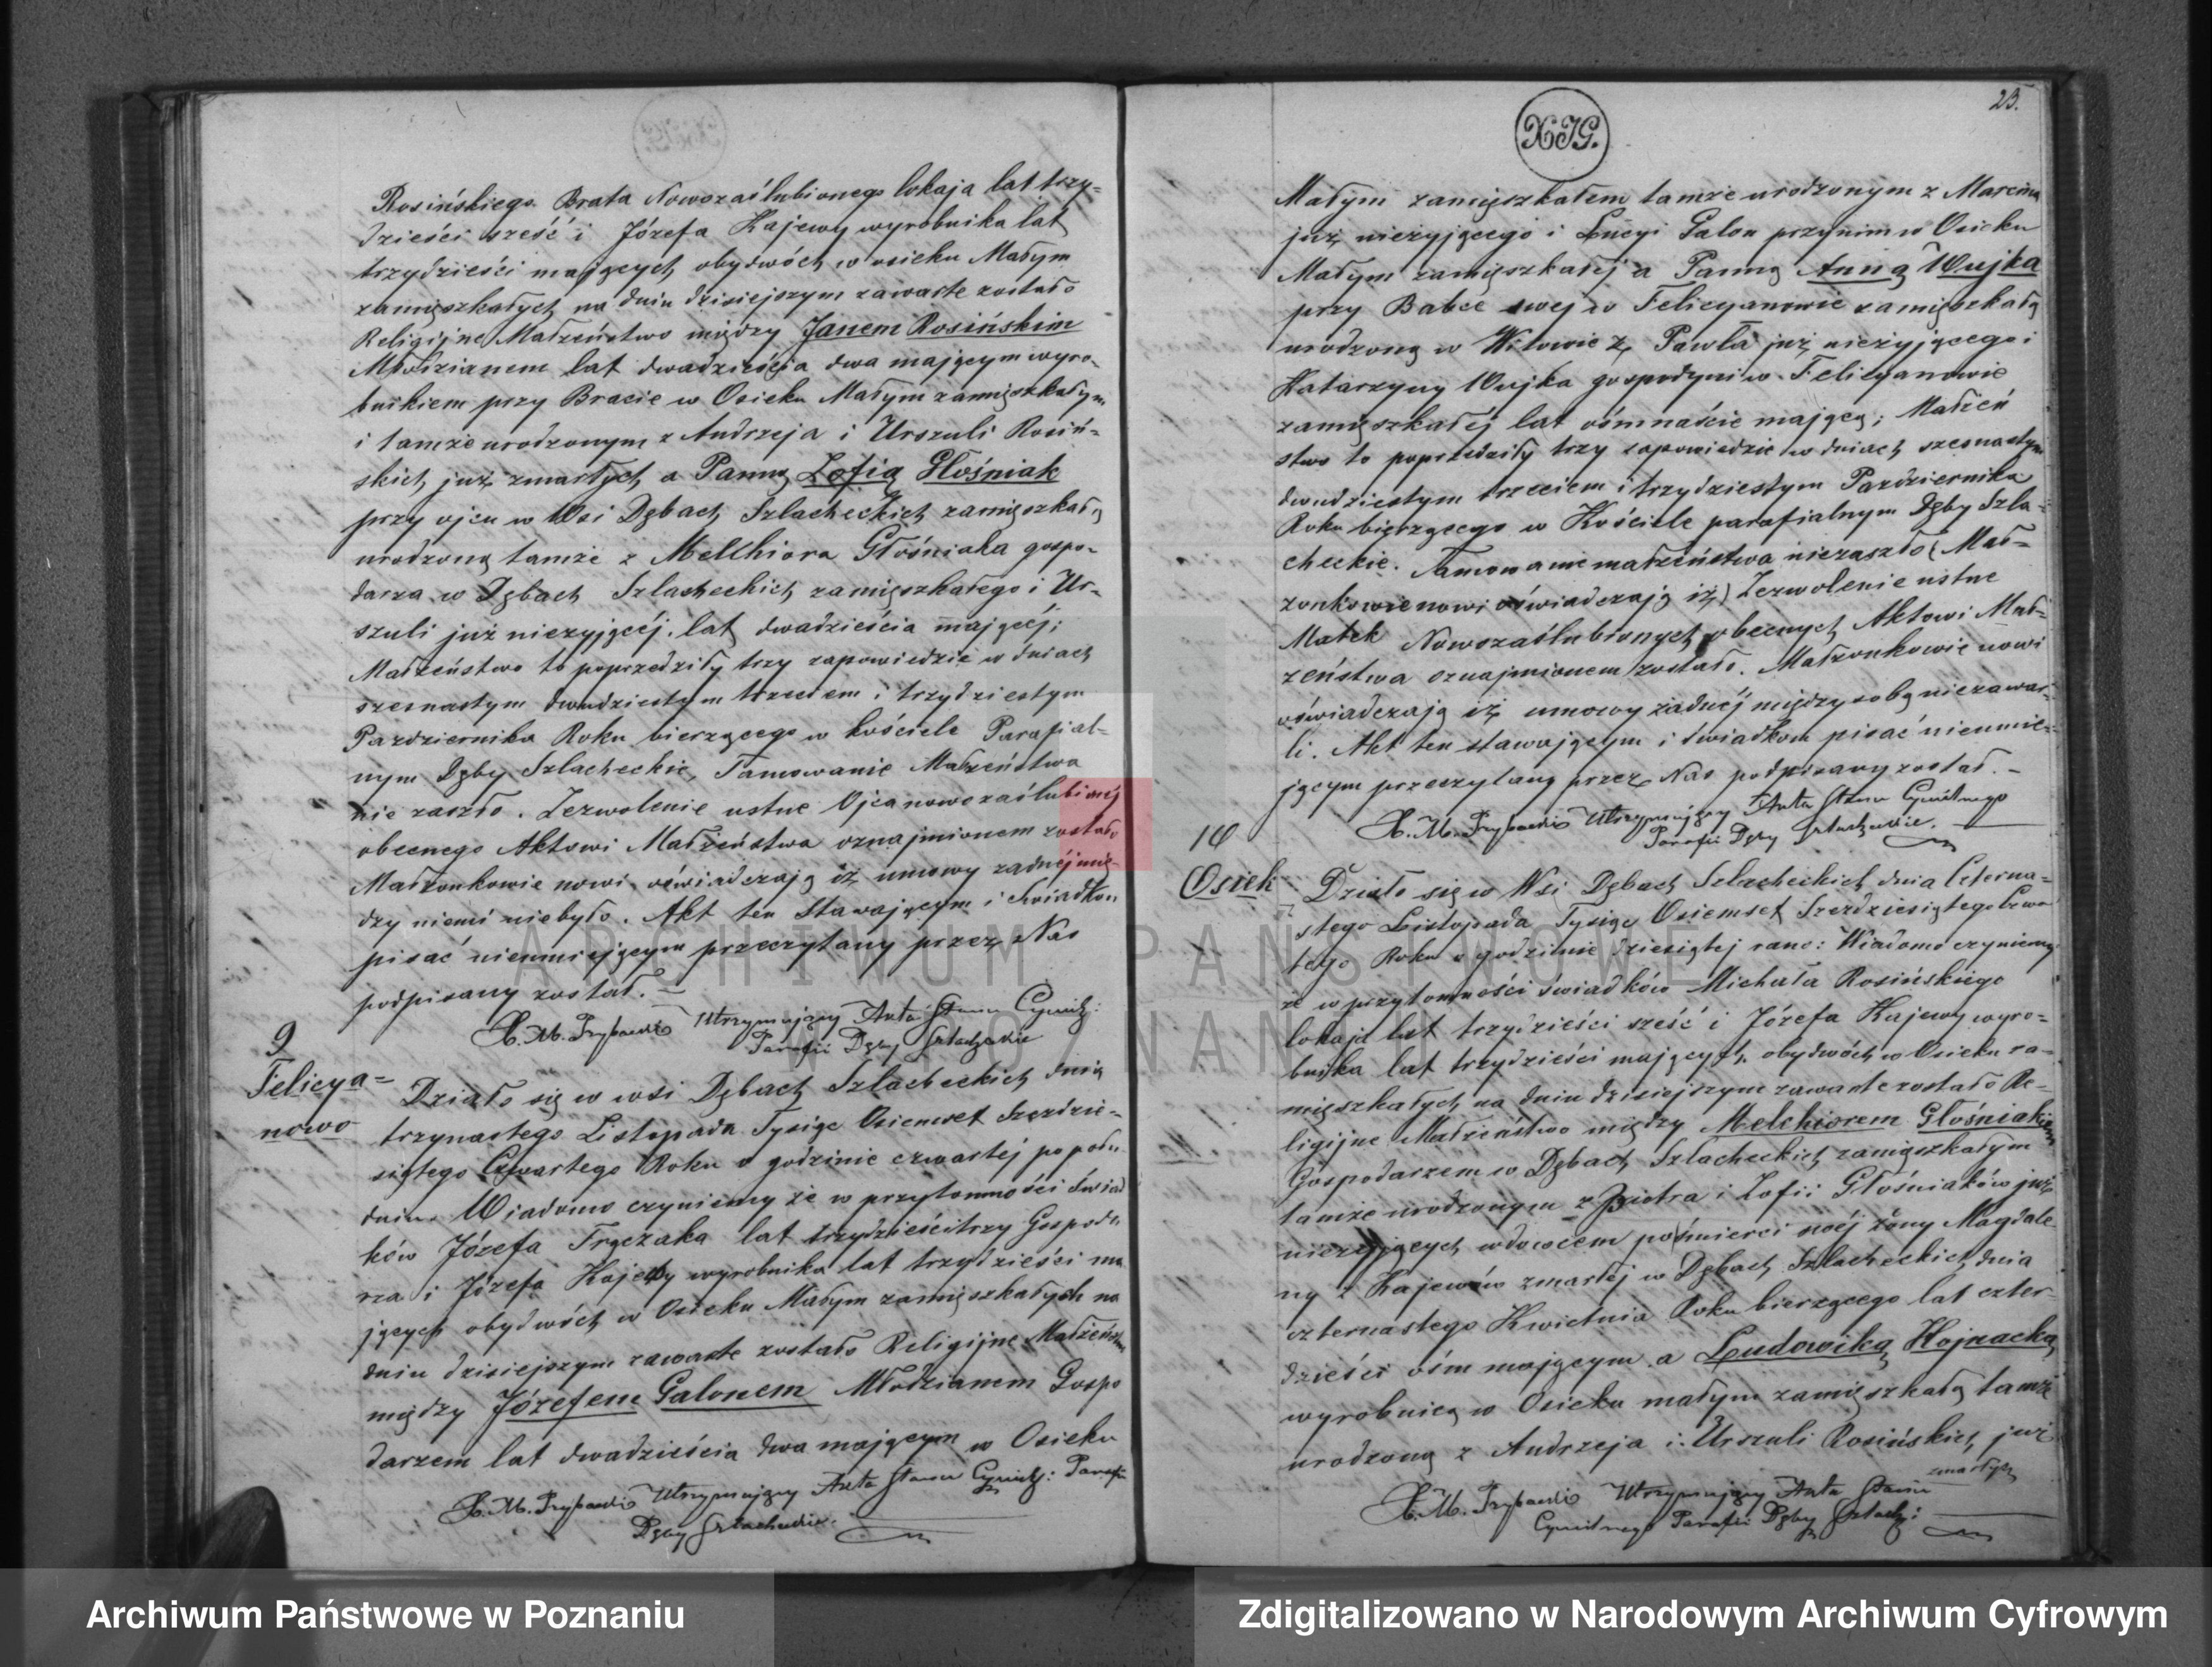 Rosińskiego Brata Nowozaślubionego lokaja lat trzy-
dzieści sześć i Józefa Kajewy wyrobnika lat
trzydzieści mających obydwóch w osieku Małym
zamięszkałych na dniu dzisiejszym zawarte zostało
Religijne Małżeństwo między Janem Rosińskim
Młodzianem lat dwadzieścia dwa mającym wyro-
bnikiem przy Bracie w Osieku Małym zamięszkałym
i tamże urodzonym z Andrzeja i Urszuli Rosiń-
skich już zmarłych a Panną Zofią Głośniak
przy ojcu w Wsi Dębach Szlacheckich zamięszkałą
urodzoną tamże z Melchiora Głośniaka gospo-
darza w Dębach Szlacheckich zamięszkałego i Ur-
szuli już nieżyjącéj, lat dwadzieścia mającéj;
Małżeństwo to poprzedziły trzy zapowiedzie w dniach
szesnastym dwudziestym trzeciem i trzydziestym
Pazdziernika Roku bierzącego w kościele Parafial-
nym Dęby Szlacheckie, Tamowanie Małżeństwa
nie zaszło. Zezwolenie ustne Ojca nowozaślubionéj
obecnego Aktowi Małżeństwa oznajmionem zostało
Małżonkowie nowi oświadczają iż umowy żadnéj mię-
dzy niemi niebyło. Akt ten Stawającym i Świadkom
pisać nieumiejącym przeczytany przez Nas
podpisany został. —
X. M. Utrzymujący Akta Stanu Cywil:
Parafii Dęby Szlacheckie
9
Felicya=
nowo
Działo się w wsi Dębach Szlacheckich dnia
trzynastego Listopada Tysiąc Osiemset Sześdzie-
siątego Czwartego Roku o godzinie czwartéj po połu
dniu. Wiadomo czyniemy że w przytomności świad
ków Józefa Frączaka lat trzydzieścitrzy Gospoda
rza i Józefa Kajewy wyrobnika lat trzydzieści ma
jących obydwóch w Osieku Małym zamięszkałych na
dniu dzisiejszym zawarte zostało Religijne Małżeństwo
między Józefem Galonem Młodzianem Gospo
darzem lat dwadzieścia dwa mającym w Osieku
X. M. Utrzymujący Akta Stanu Cywil: Parafii
Dęby Szlacheckie.
XJG.
23.
Małym zamięszkałem tamże urodzonym z Marcina
już nieżyjącego i Łucyi Galon przy nim w Osieku
Małym zamięszkałej a Panną Anną Wujka
przy Babce swej w Felicyanowie zamięszkałą
urodzoną w Witowie z Pawła już nieżyjącego i
Katarzyny Wujka gospodyni w Felicyanowie
zamięszkałéj lat ośmnaście mającą; Małżeń
stwo to poprzedziły trzy zapowiedzie w dniach szesnastym
dwudziestym trzeciem i trzydziestym Pazdziernika
Roku bierzącego w Kościele parafialnym Dęby Szla-
checkie. Tamowanie małżeństwa niezaszło (Mał-
żonkowie nowi oświadczają iż) Zezwolenie ustne
Matek Nowozaślubionych obecnych Aktowi Mał-
żeństwa oznajmionem zostało. Małżonkowie nowi
oświadczają iż umowy żadnéj między sobą niezawar-
li. Akt ten stawającym i świadkom pisać nieumie-
jącym przeczytany przez Nas podpisany został. —
X. M. Utrzymujący Akta Stanu Cywilnego
Parafii Dęby Szlacheckie.
10
Osiek
Działo się w Wsi Dębach Szlacheckich dnia Czterna=
stego Listopada Tysiąc Osiemset Szezdziesiątego Czwar
tego Roku o godzinie dziesiątej rano: Wiadomo czyniemy
że w przytomności świadków Michała Rosińskiego
lokaja lat trzydzieści sześć i Józefa Kajewy wyro=
bnika lat trzydzieści mających obydwóch w Osieku za-
mięszkałych na dniu dzisiejszym zawarte zostało Re-
ligijne Małżeństwo między Melchiorem Głośniakiem
Gospodarzem w Dębach Szlacheckich zamięszkałym
tamże urodzonym z Piotra i Zofii Głośniaków już
nieżyjących wdowcem po śmierci swéj żony Magdale
ny z Kajewów zmarłej w Dębach Szlacheckich dnia
czternastego Kwietnia Roku bierzącego lat czter-
dzieści ośm mającym a Ludowiką Hojnacką
wyrobnicą w Osieku małym zamięszkałą tamże
urodzoną z Andrzeja i Urszuli Rosińskich już
zmarłych
X. M. Utrzymujący Akta Stanu
Cywilnego Parafii Dęby Szlachec:
ARCHIWUM PAŃSTWOWE
W POZNANIU
Archiwum Państwowe w Poznaniu
Zdigitalizowano w Narodowym Archiwum Cyfrowym